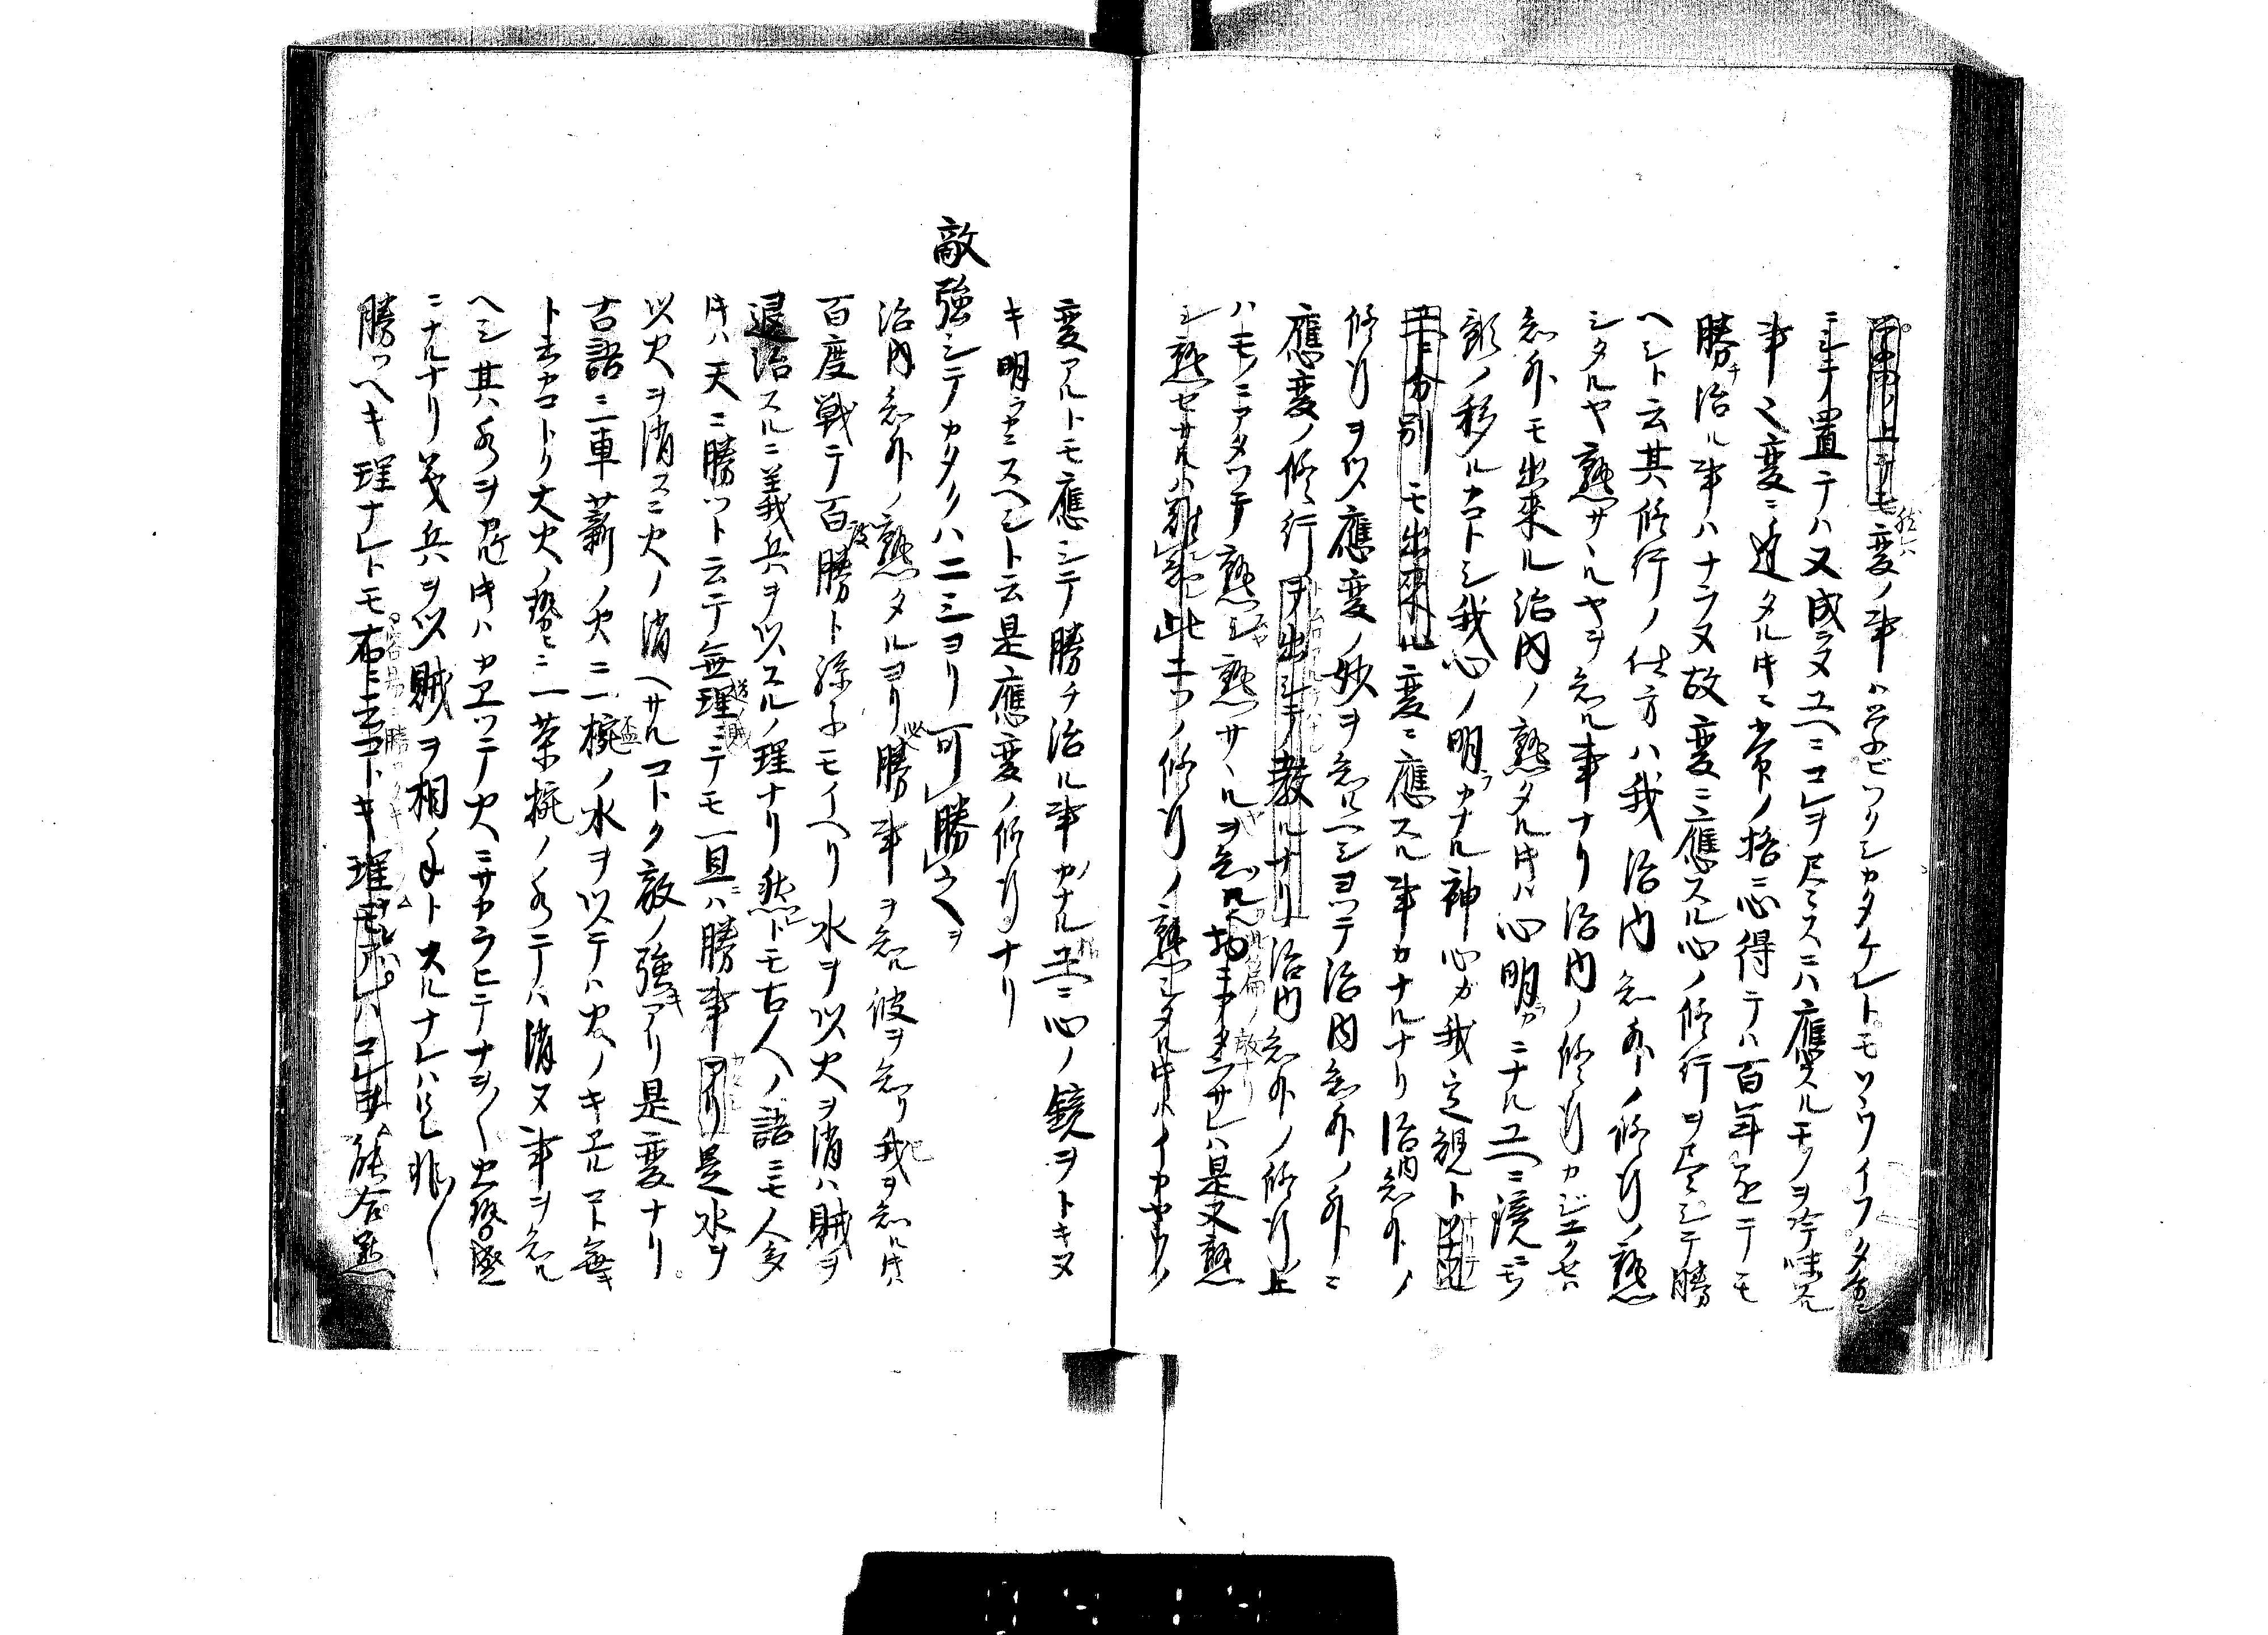 変ノ事ハ学ビツクシカタケレトモソウイフタ方
ニシテ置テハ又成ラヌユヘニコレヲ尽ミスニハ應スルモノヲ吟味スル
事之変ニ逢タルキニ常ノ格ニ心得テハ百年アツテモ
勝チ治ル事ハナラヌ故変ニ應スル心ノ修行ヲ尽シテ勝
ヘシト云其修行ノ仕方ハ我治内知外ノ修行ノ熟
シタルヤ熟サヽルヤヲ知ル事ナリ治内ノ修行カジユクセハ
知外モ出来ル治内ノ熟タルキハ心明カニナルユヘニ鏡ニモノ
影ノ移ルカコトシ我心ノ明ラカナル神心カ我定観ト
分別モ出来ル変ニ應スル事カナルナリ治内知外ノ
修行ヲ以應変ノ妙ヲ知ルヘシヨツテ治内知外ノ外ニ
應変ノ修行ヲ出シテ教ルナリ治内知外ノ修行上
ハモノニアタツテ熟シヤ熟サヽルヲ知ル物ニアタラサレハ是又熟
シ熟セサルハ難知此二ツノ修行ノ熟シタルキハイカヤウノ
変アルトモ應シテ勝チ治ル事カナルユヘニ心ノ鏡ヲトキヌ
キ明ラカニスヘシト云是應変ノ修行ナリ
敵強シテカタクハ二三ヨリ可勝之ヲ
治内知外ノ熟タルヨリ勝事ヲ知ル彼ヲ知リ我ヲ知ルキハ
百度戦テ百度勝ト孫子モイヘリ水ヲ以火ヲ消ハ賊ヲ
退治スルニ義兵ヲ以スルノ理ナリ然レトモ古人ノ語ニモ人多
キハ天ニ勝ツト云テ無理ニテモ一旦ニハ勝事アリ是水ヲ
以火ヲ消スニ火ノ消ヘサルコトク敵ノ強キアリ是変ナリ
古語ニ一車薪ノ火ニ一椀ノ水ヲ以テハ火ノキエルコト無キ
ト云カコトク大火ノ勢ニ一茶椀ノ水ニテハ消ヌ事ヲ知ル
ヘシ其ハ水ヲカクルキハカエツテ火ニサカラヒテナヲ〱火勢盛
ニナルナリ義兵ヲ以賊ヲ相手トスルナレハ是非〱
勝ツヘキ理ナレトモ右ニ云コトキ理モアレハコレヲ能合点